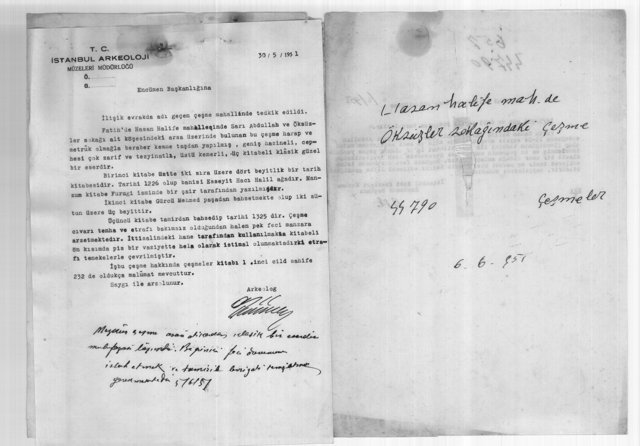 T. C.
İSTANBUL ARKEOLOJİ
MÜZELERİ MÜDÜRLÜĞÜ
Ö.
G.
30/5/1951
Encümen Başkanlığına
İlişik evrakda adı geçen çeşme mahallinde tedkik edildi.
Fatih'de Hasan Halife mahallesinde Sarı Abdullah ve Öksüz-
ler sokağı alt köşesindeki arsa üzerinde bulunan bu çeşme harap ve
metrûk olmağla beraber kesme taşdan yapılmış, geniş hazineli, cep-
hesi çok zarif ve tezyinatlı, üstü kemerli, üç kitabeli klâsik güzel
bir eserdir.
Birinci kitabe üstte iki sıra üzere dört beyitlik bir tarih
kitabesidir. Tarihi 1226 olup banisi Esseyit Hacı Halil ağadır. Man-
zum kitabe Furugi isminde bir şair tarafından yazılmışdır.
İkinci kitabe Gürcü Mehmed paşadan bahsetmekte olup iki sü-
tun üzere üç beyittir.
Üçüncü kitabe tamirden bahsedip tarihi 1325 dir. Çeşme
civarı tenha ve etrafı bakımsız olduğundan halen pek feci manzara
arzetmektedir. İttisalindeki hane tarafından kullanılmakta kitabeli
ön kısımda pis bir vaziyette hela olarak istimal olunmaktadırki etra-
fı tenekelerle çevrilmiştir.
İşbu çeşme hakkında çeşmeler kitabı 1.inci cild sahife
232 de oldukça malûmat mevcuttur.
Saygı ile arzolunur.
Arkeolog
Mezkûr çeşme klasik bir eserdir
muhafazası lâzımdır.
5/6/51
Hasan halife mah. de
Öksüzler sokağındaki çeşme
44790 Çeşmeler
6. 6. 951